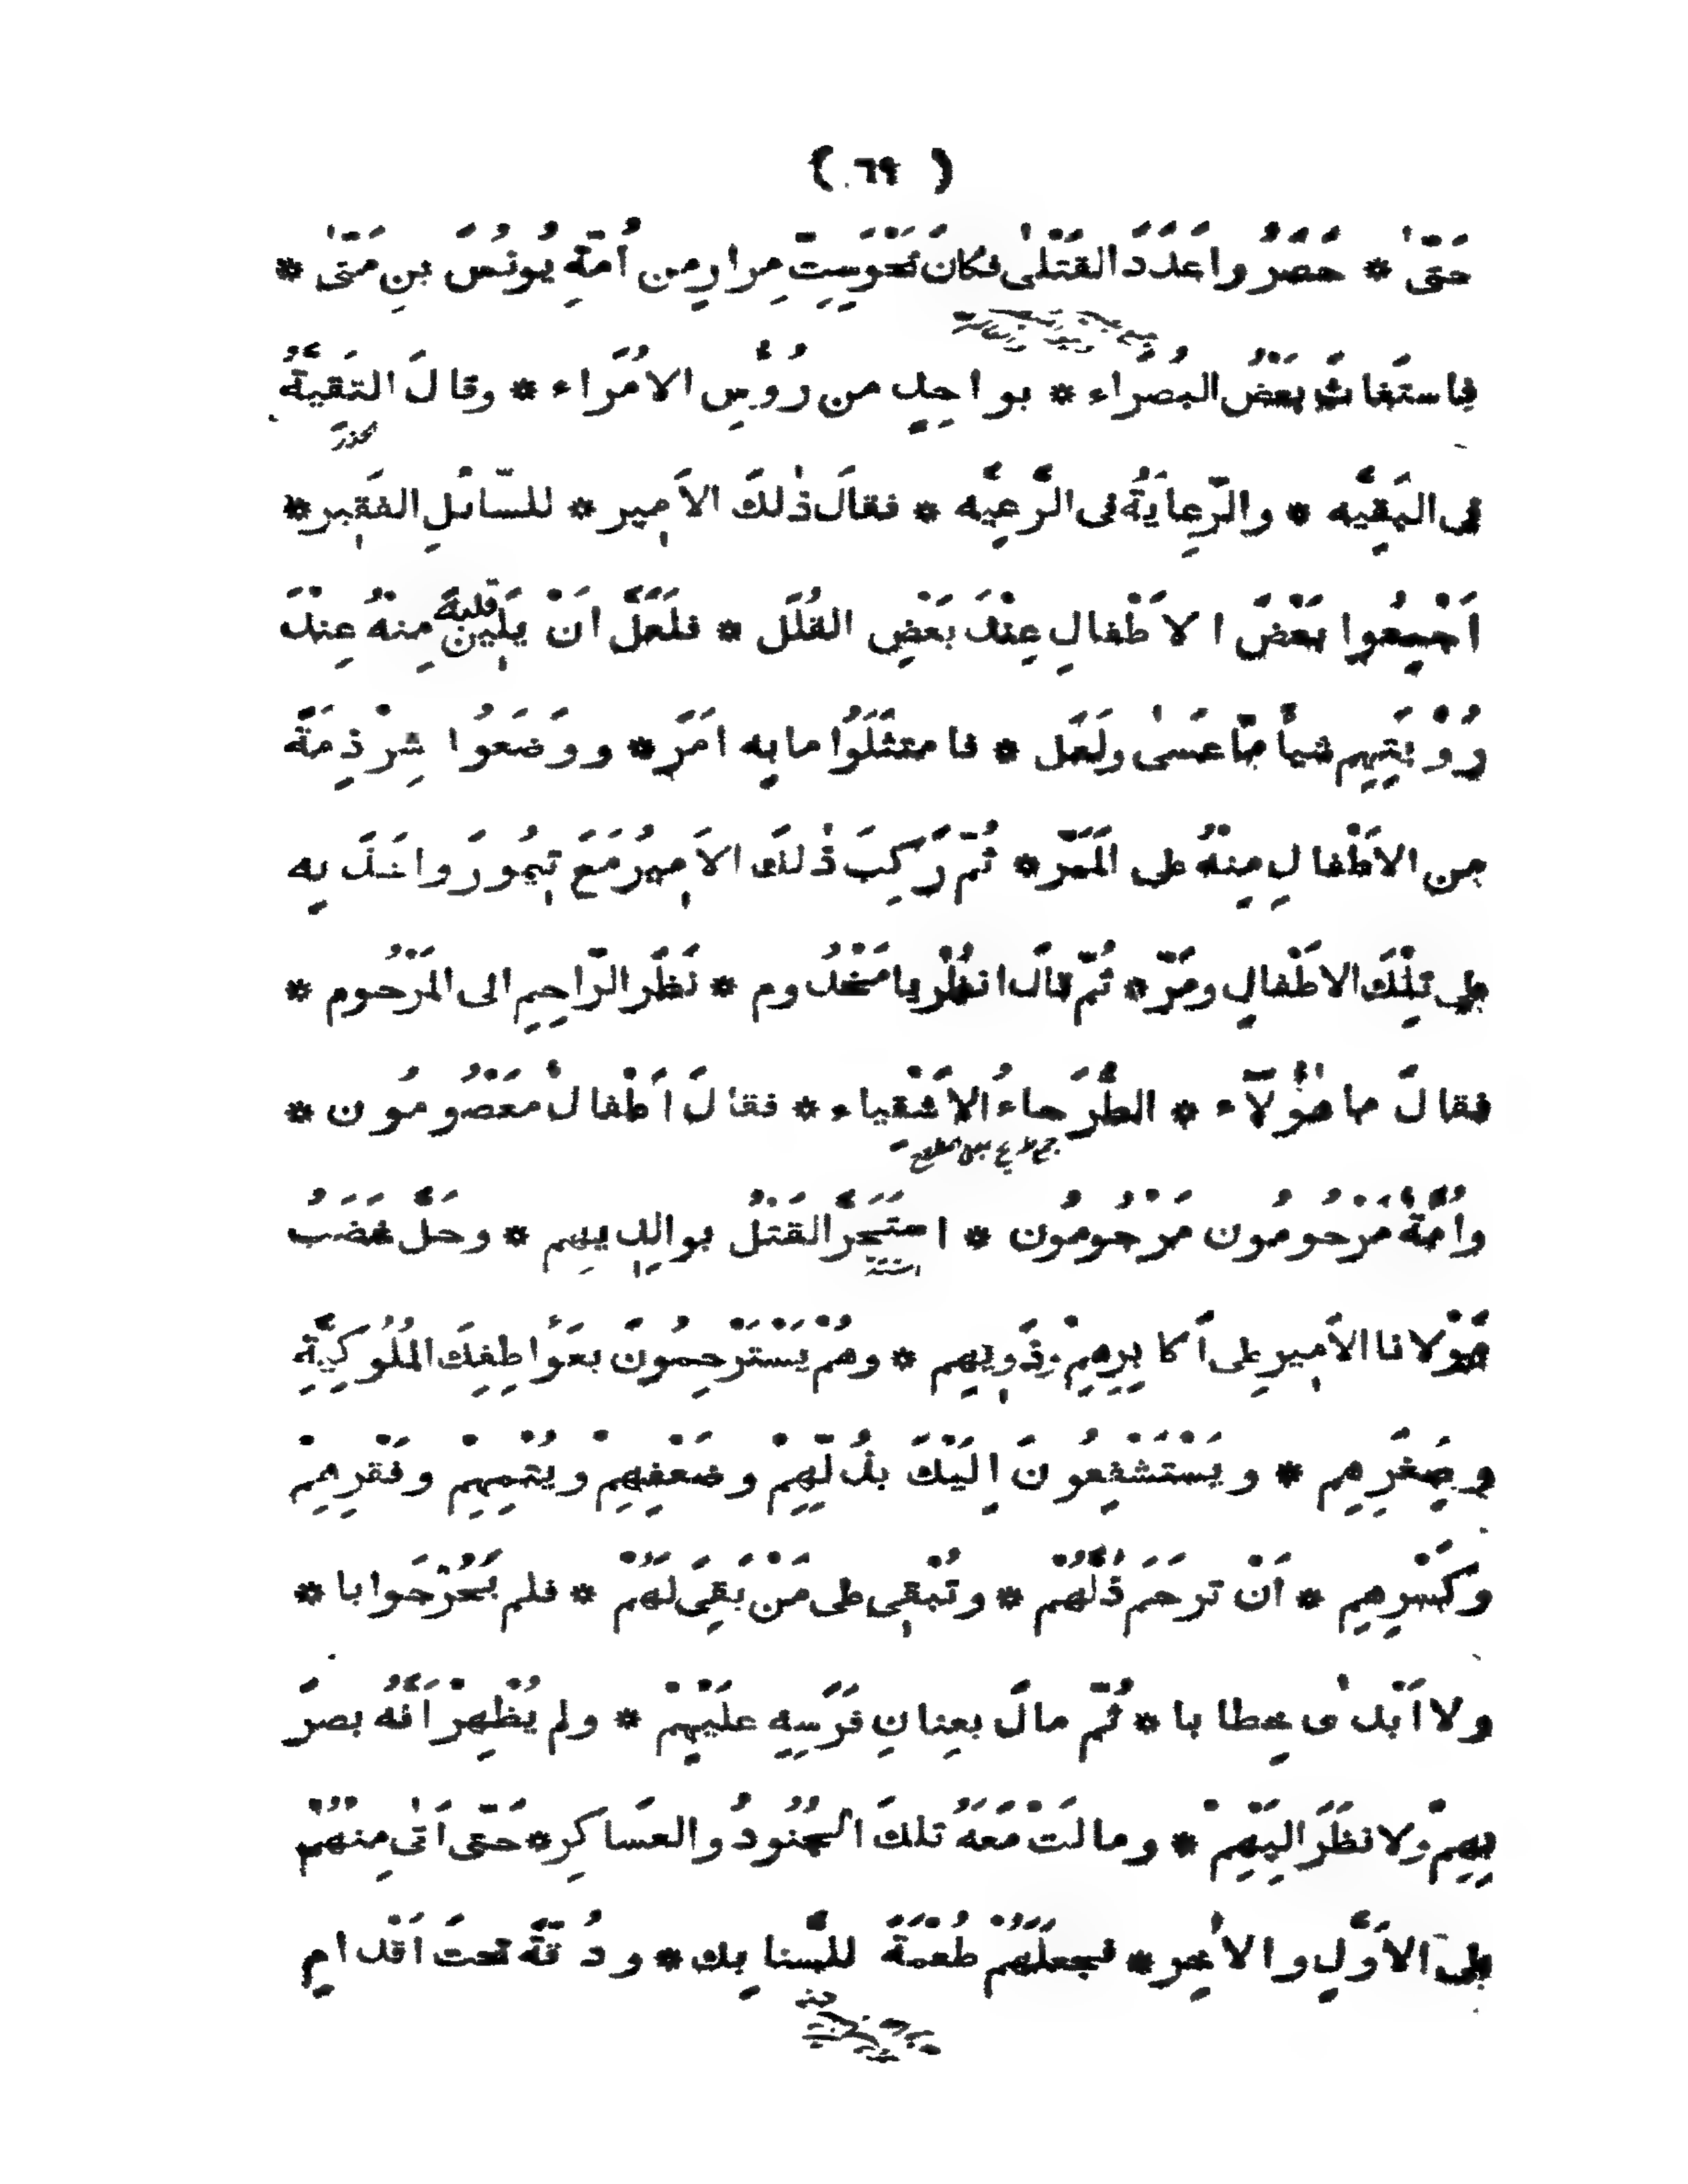 ( ٦٩ )
حَتّىٰ * حَصَرُوا عَدَدَ القَتْلىٰ فكانَ نَحْوَ سِتِّ مِرارٍ من اُمّةِ يُونُسَ بنِ مَتّىٰ *
فاستغاثَ بَعْضُ البُصَراء * بواحِدٍ من رُؤسِ الاُمَراء * وقالَ التَقِيَّةُ
الحذر
فى البَقِيَّه * والرِّعايَةُ فى الرَّعِيَّه * فقالَ ذٰلكَ الاَمِير * للسّائلِ الفَقِير *
اَجْمِعُوا بَعْضَ الاَطْفالِ عِنْدَ بَعْضِ القُلَل * فلَعَلَّ اَنْ يَلِينَ قلبهُ مِنْهُ عِنْدَ
رُؤْيَتِهِم شيأً مّا عَسٰى ولَعَل * فامتثَلُوا ما بِه اَمَر * ووَضَعُوا شِرْذِمَةً
من الاَطْفالِ مِنْهُ على المَمَرّ * ثُمّ رَكِبَ ذٰلكَ الاَمِيرُ مَعَ تِيمُورَ واخَذَ بِه
على تِلْكَ الاَطْفالِ ومَرّ * ثُمّ قالَ انظُرْ يا مَخْدُوم * نَظَرَ الرّاحِمِ الى المَرْحُوم *
فقالَ ما هٰؤُلآء * الطُّرَحاءُ الاَشْقِياء * فقالَ اَطْفالٌ مَعْصُومُون *
واُمّةٌ مَرْحُومُون مَرْحُومُون * استَحَرَّ القَتْلُ بوالِدِيهِم * وحَلَّ غَضَبُ
اشتدّ
مَوْلانا الاَمِيرِ على اَكابِرِهِمْ وذَوِيهِم * وهُمْ يَسْتَرْحِمُونَ بعَواطِفِكَ المُلُوكِيَّةِ
وصِغَرِهِم * ويَسْتَشْفِعُونَ اِلَيْكَ بذُلِّهِمْ وضَعْفِهِمْ ويُتْمِهِمْ وفَقْرِهِمْ
وكَسْرِهِم * اَنْ ترحَمَ ذُلَّهُمْ * وتُبْقِى على مَنْ بَقِىَ لَهُمْ * فلم يَحُرْ جَوابا *
ولا اَبْدىٰ خِطابا * ثُمّ مالَ بعِنانِ فَرَسِهِ علَيْهِمْ * ولم يُظْهِرْ اَنّهُ بصرَ
بِهِمْ ولا نظَرَ اِلَيْهِمْ * ومالَتْ مَعَهُ تلكَ الجُنُودُ والعَساكِر * حَتّى اَتٰى مِنْهُمْ
على الاَوَّلِ والاٰخِر * فجعلَهُمْ طُعْمَةً للسَّنابِك * ودُقّةً تحتَ اَقْدامِ